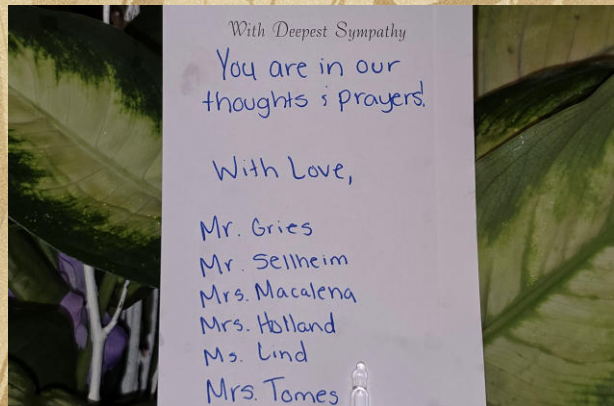 With Deepest Sympathy
You are in our
thoughts & prayers!
With Love,
Mr. Gries
Mr. Sellheim
Mrs. Macalena
Mrs. Holland
Ms. Lind
Mrs. Tomes